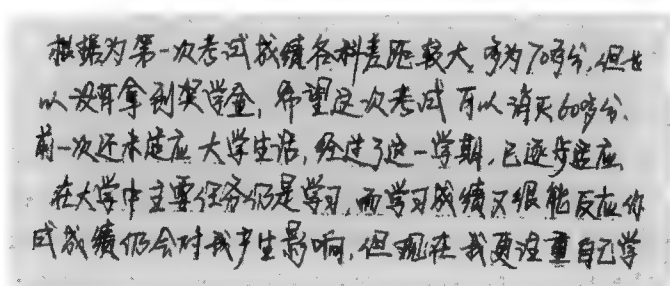 根据为第一次考试成绩各科差距较大,多为70多分,但也
以没有拿到奖学金,希望这次考试可以消灭60多分、
前一次还未适应大学生活,经过了这一学期,已逐步适应
在大学中主要任务仍是学习,而学习成绩又很能反应你
成绩仍会对我产生影响,但现在我更注重自己学